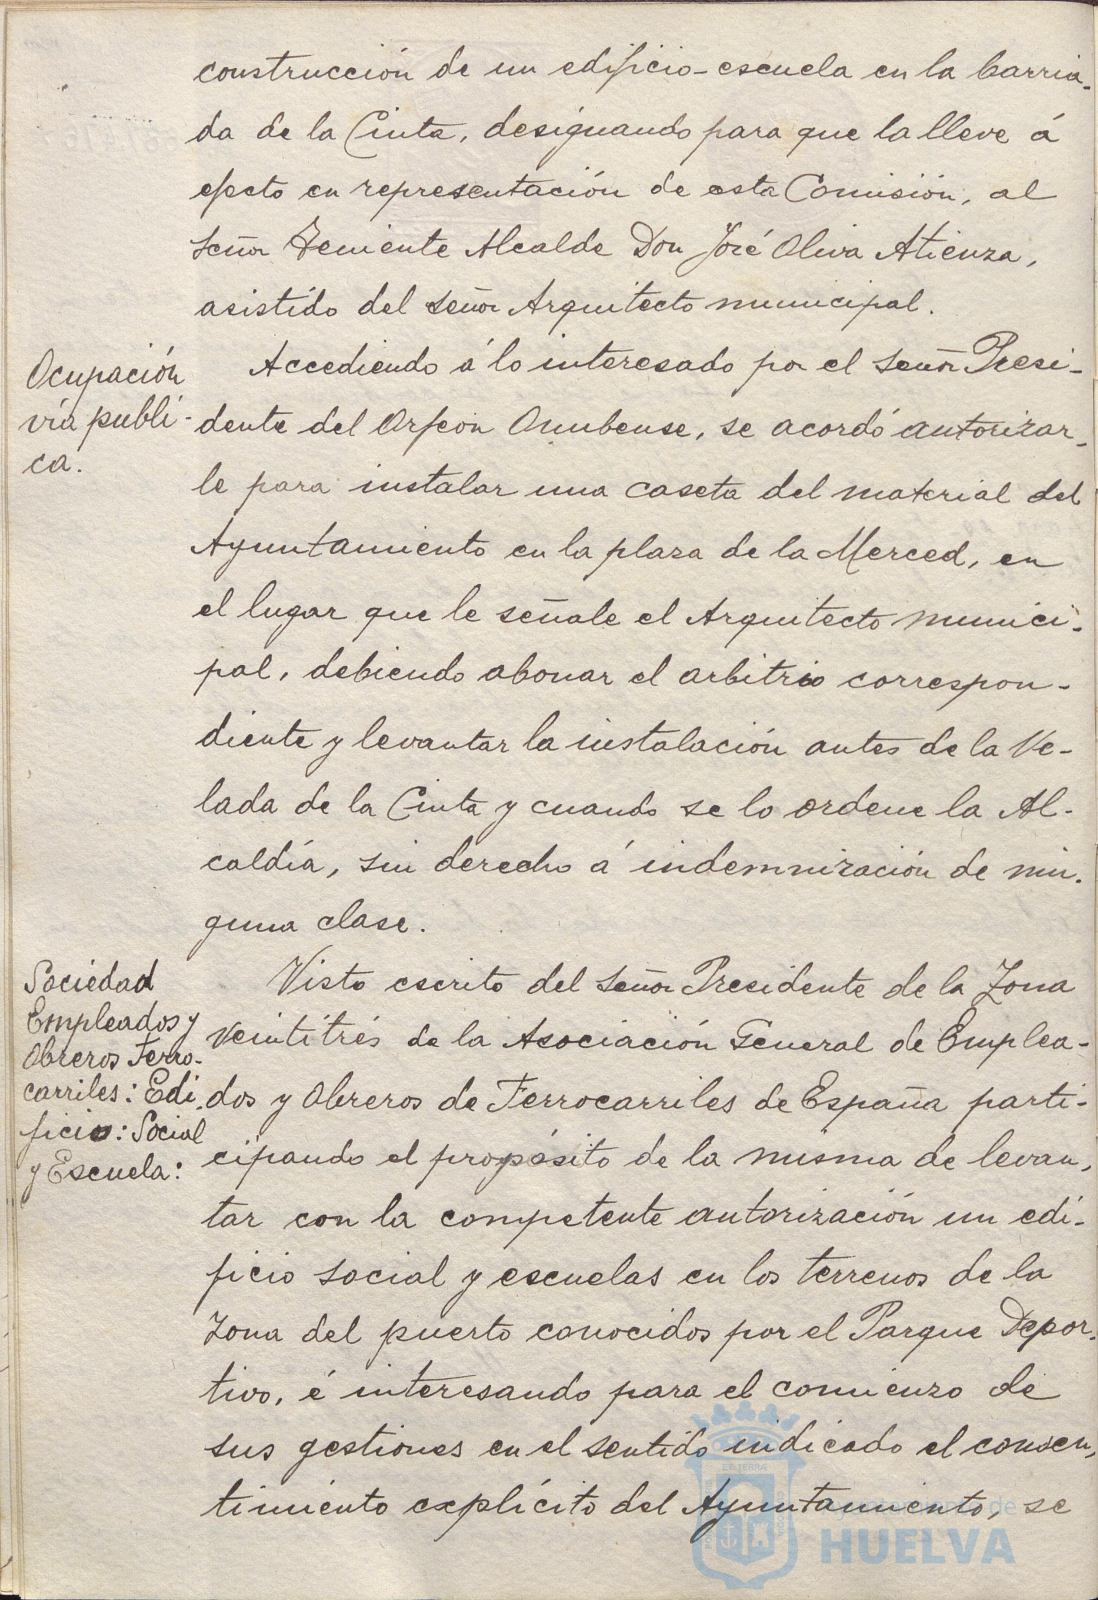 construcción de un edificio-escuela en la barria-
da de la Cinta, designando para que la lleve á
efecto en representación de esta Comisión, al
señor Teniente Alcalde Don José Oliva Atienza,
asistido del señor Arquitecto municipal.
Ocupación
vía publi-
ca.
Accediendo á lo interesado por el señor Presi-
dente del Orfeón Onubense, se acordó autorizar-
le para instalar una caseta del material del
Ayuntamiento en la plaza de la Merced, en
el lugar que le señale el Arquitecto munici-
pal, debiendo abonar el arbitrio correspon-
diente y levantar la instalación antes de la Ve-
lada de la Cinta y cuando se lo ordene la Al-
caldía, sin derecho á indemnización de nin-
guna clase.
Sociedad
Empleados y
Obreros Ferro-
carriles: Edi-
ficio: Social
y Escuela:
Visto escrito del señor Presidente de la Zona
veintitrés de la Asociación General de Emplea-
dos y Obreros de Ferrocarriles de España parti-
cipando el propósito de la misma de levan-
tar con la competente autorización un edi-
ficio social y escuelas en los terrenos de la
Zona del puerto conocidos por el Parque Depor-
tivo, é interesando para el comienzo de
sus gestiones en el sentido indicado el consen-
timiento explícito del Ayuntamiento, se
HUELVA